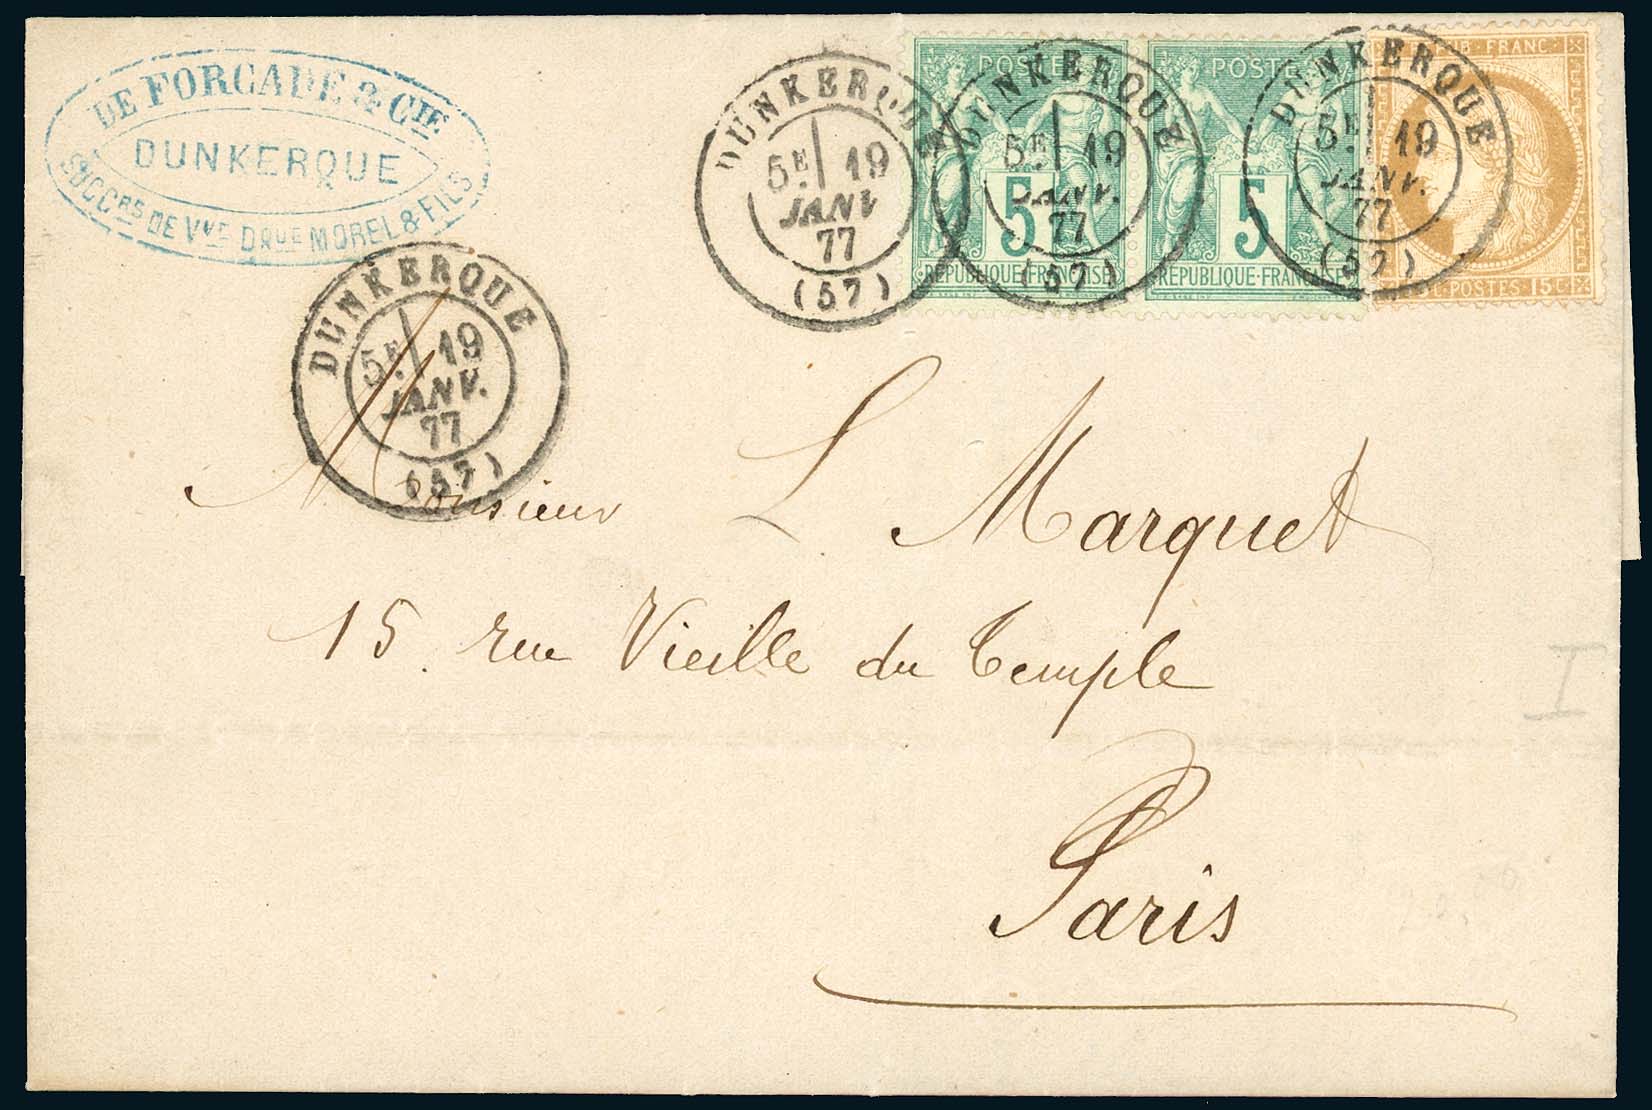 DE FORCADE & CIE
DUNKERQUE
SUCCRS DE VVE DQUE MOREL & FILS
DUNKERQUE
5E 19
JANV
77
(57)
POSTE
5
RÉPUBLIQUE FRANÇAISE
DUNKERQUE
5E 19
JANV.
77
(57)
POSTE
5
RÉPUBLIQUE FRANÇAISE
DUNKERQUE
5E 19
JANV.
77
(57)
PUB FRANC
C. POSTES 15C
DUNKERQUE
5E 19
JANV.
77
(57)
Monsieur L. Marquet
15. rue Vieille du Temple
Paris
I